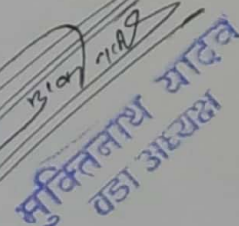 मुक्तिनाथ यादव
वडा अध्यक्ष